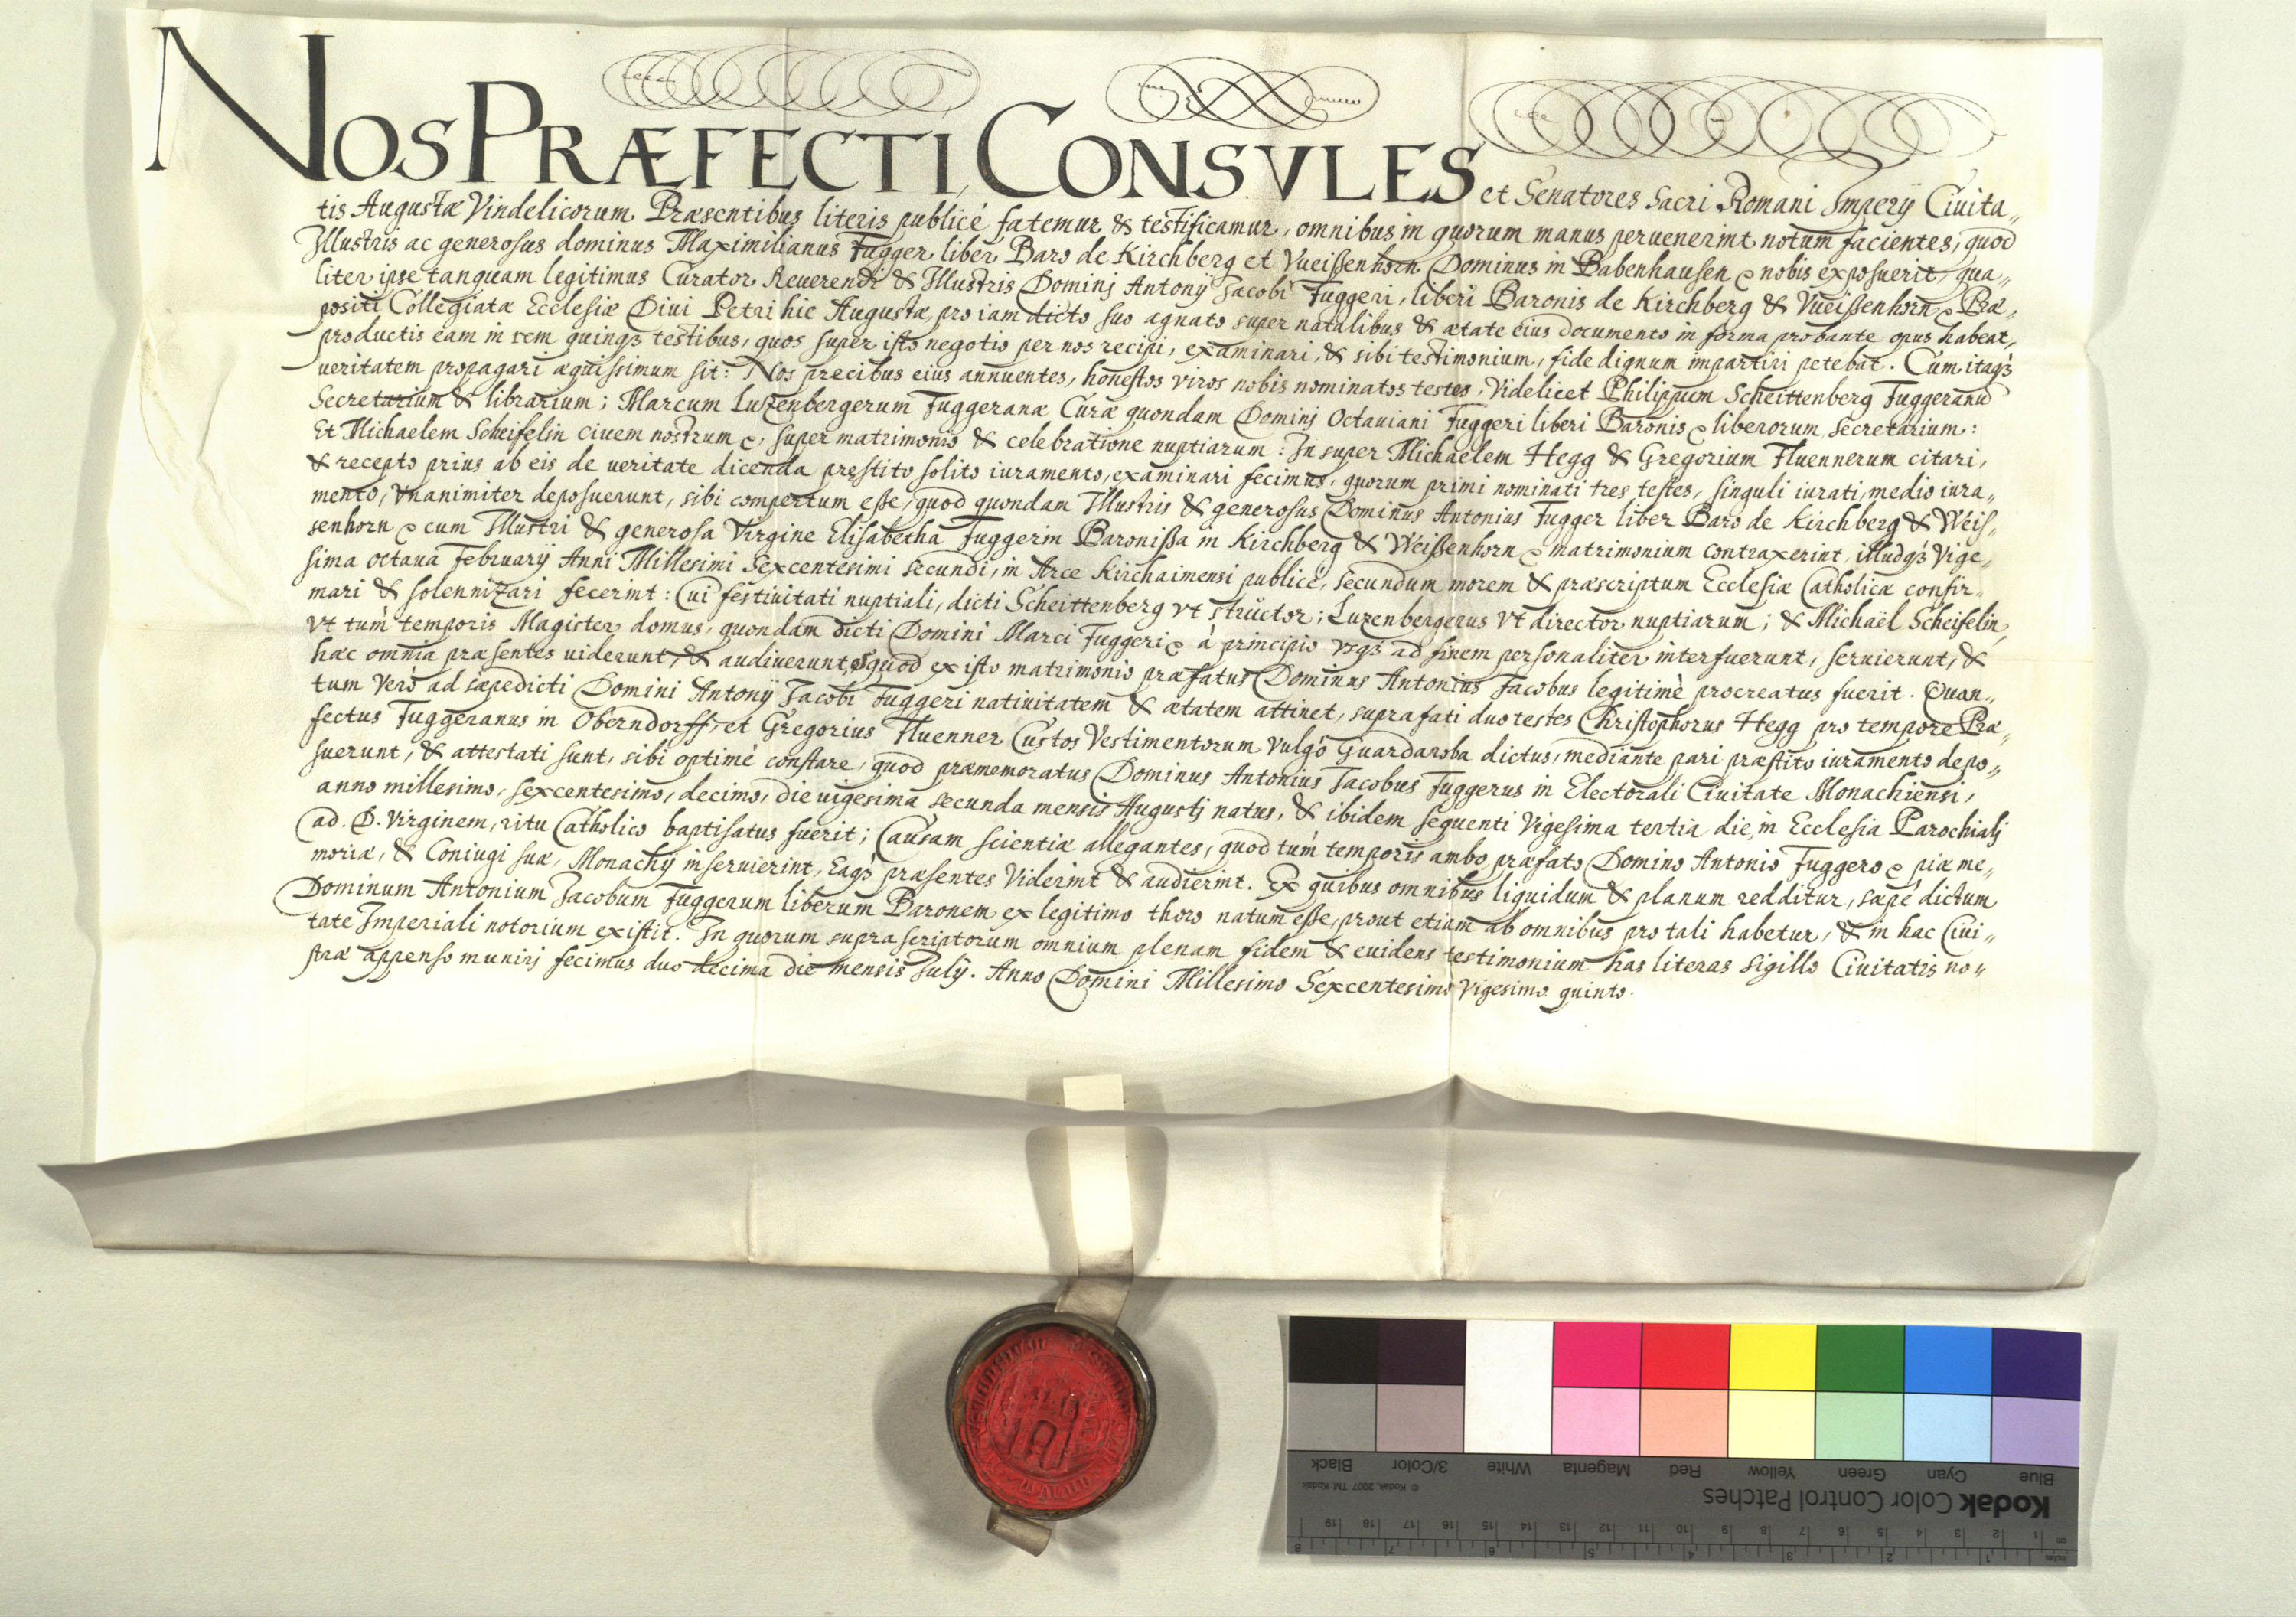 NOS PRÆFECTI, CONSVLES et Senatores Sacri Romani Imperÿ Ciuita„
tis Augustæ Vindelicorum Præsentibus literis publicè fatemur & testificamur, omnibus in quorum manus peruenerint notum facientes, quod
Illustris ac generosus dominus Maximilianus Fugger liber Baro de Kirchberg et Vueißenhorn Dominus in Babenhausen ꝛ nobis exposuerit, qua„
liter ipse tanquam legitimus Curator Reuerendi & Illustris Dominj Antonÿ Jacobi Fuggeri, liberi Baronis de Kirchberg & Vueißenhorn ꝛ Præ„
positi Collegiatæ Ecclesiæ Diui Petri hic Augustæ, pro iam dicto suo agnato super natalibus & ætate eius documento in forma probante opus habeat,
productis eam in rem quinqꝫ testibus, quos super isto negotio per nos recipi, examinari, & sibi testimonium, fide dignum impartiri petebat. Cum itaqꝫ
ueritatem propagari æquissimum sit: Nos precibus eius annuentes, honestos viros nobis nominatos testes, Videlicet Philippum Scheittenberg Fuggeranũ
Secretarium & librarium; Marcum Luzenbergerum Fuggeranæ Curæ quondam Dominj Octauiani Fuggeri liberi Baronis ꝛ liberorum secretarium:
Et Michaelem Scheifelin ciuem nostrum ꝛ, super matrimonio & celebratione nuptiarum: Insuper Michaelem Hegg & Gregorium Fluennerum citari,
& recepto prius ab eis de ueritate dicenda prestito solito iuramento, examinari fecimus, quorum primi nominati tres testes, singuli iurati, medio iura„
mento, Vnanimiter deposuerunt, sibi compertum eße, quod quondam Illustris & generosus Dominus Antonius Fugger liber Baro de Kirchberg & Weis„
senhorn ꝛ cum Illustri & generosa Virgine Elisabetha Fuggerin Baronißa in Kirchberg & Weißenhorn ꝛ matrimonium contraxerint, illudqꝫ Vige„
sima octaua Februarÿ Anni Millesimi Sexcentesimi secundi, in Arce Kirchaimensi publicè, secundum morem & præscriptum Ecclesiæ Catholicæ confir„
mari & solennizari fecerint: Cui festiuitati nuptiali, dicti Scheittenberg vt structor; Luzenbergerus Vt director nuptiarum; & Michaël Scheifelin,
Vt tùm temporis Magister domus, quondam dicti Domini Marci Fuggeri ꝛ à principio vsqꝫ ad finem personaliter interfuerunt, seruierunt, &
hæc omnia præsentes uiderunt, & audiuerunt, & quod ex isto matrimonio præfatus Dominus Antonius Jacobus legitimè procreatus fuerit. Quan„
tum Verò ad sæpedicti Domini Antonÿ Jacobi Fuggeri natiuitatem & ætatem attinet, suprafati duo testes Christophorus Hegg pro tempore Præ„
fectus Fuggeranus in Oberndorff, et Gregorius Fluenner Custos Vestimentorum vulgò Guardaroba dictus, mediante pari præstito iuramento depo„
suerunt, & attestati sunt, sibi optimè constare, quod præmemoratus Dominus Antonius Jacobus Fuggerus in Electorali Ciuitate Monachiensi,
anno millesimo, sexcentesimo, decimo, die uigesima secunda mensis Augustj natus, & ibidem sequenti Vigesima tertia die, in Ecclesia Parochialj
ad. D. Virginem, ritu Catholico baptisatus fuerit; Causam scientiæ allegantes, quod tùm temporis ambo præfato Domino Antonio Fuggero ꝛ piæ me„
moriæ, & Coniugi suæ, Monachÿ inseruierint, Eaqꝫ præsentes Viderint & audierint. Ex quibus omnibus liquidum & planum redditur, sæpè dictum
Dominum Antonium Jacobum Fuggerum liberum Baronem ex legitimo thoro natum eße, prout etiam ab omnibus pro tali habetur, & in hac Ciui„
tate Imperiali notorium existit. In quorum suprascriptorum omnium plenam fidem & euidens testimonium has literas sigillo Ciuitatis no„
stræ appenso munirj fecimus duodecima die mensis Julÿ. Anno Domini Millesimo Sexcentesimo Vigesimo quinto.
Blue Cyan Green Yellow Red Magenta White 3/Color Black
Kodak Color Control Patches
© Kodak, 2007 TM: Kodak
cm 1 2 3 4 5 6 7 8 9 10 11 12 13 14 15 16 17 18 19
inches 1 2 3 4 5 6 7 8